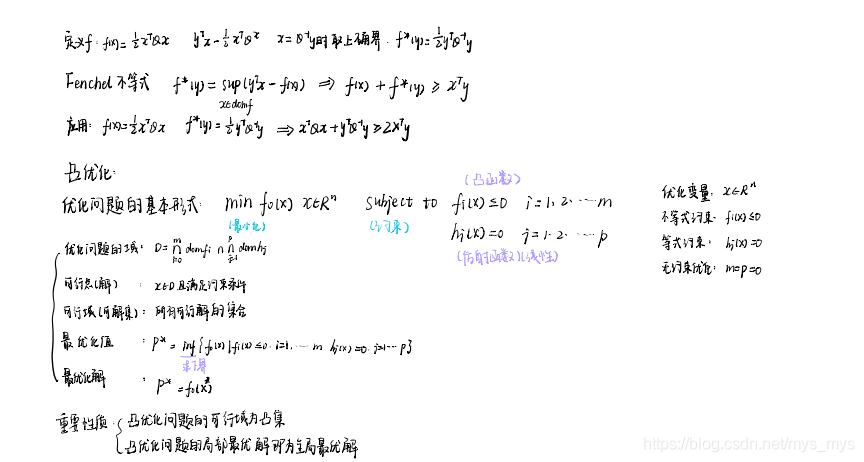 定义f: f(x)=½xᵀQx yᵀx-½xᵀQx x=Q⁻¹y时取上确界. f*(y)=½yᵀQ⁻¹y
Fenchel不等式 f*(y)=sup(yᵀx-f(x)) ⇒ f(x)+f*(y)≥xᵀy
x∈domf
应用: f(x)=½xᵀQx f*(y)=½yᵀQ⁻¹y ⇒ xᵀQx+yᵀQ⁻¹y≥2xᵀy
凸优化:
(凸函数)
优化问题的基本形式: min f₀(x) x∈Rⁿ subject to fᵢ(x)≤0 i=1,2,…m
(最小化) (约束)
hⱼ(x)=0 j=1,2,…p
(仿射函数)(线性)
优化变量: x∈Rⁿ
不等式约束: fᵢ(x)≤0
等式约束: hⱼ(x)=0
无约束优化: m=p=0
优化问题的域: D=⋂ᵢ₌₀ᵐ domfᵢ ∩ ⋂ⱼ₌₁ᵖ domhⱼ
可行点(解): x∈D且满足约束条件
可行域(可解集): 所有可行解的集合
最优化值: p*=inf{f₀(x)|fᵢ(x)≤0.i=1,…m hⱼ(x)=0.j=1…p}
求下界
最优化解: p*=f₀(x*)
重要性质: 凸优化问题的可行域为凸集
凸优化问题的局部最优解即为全局最优解
https://blog.csdn.net/mys_mys